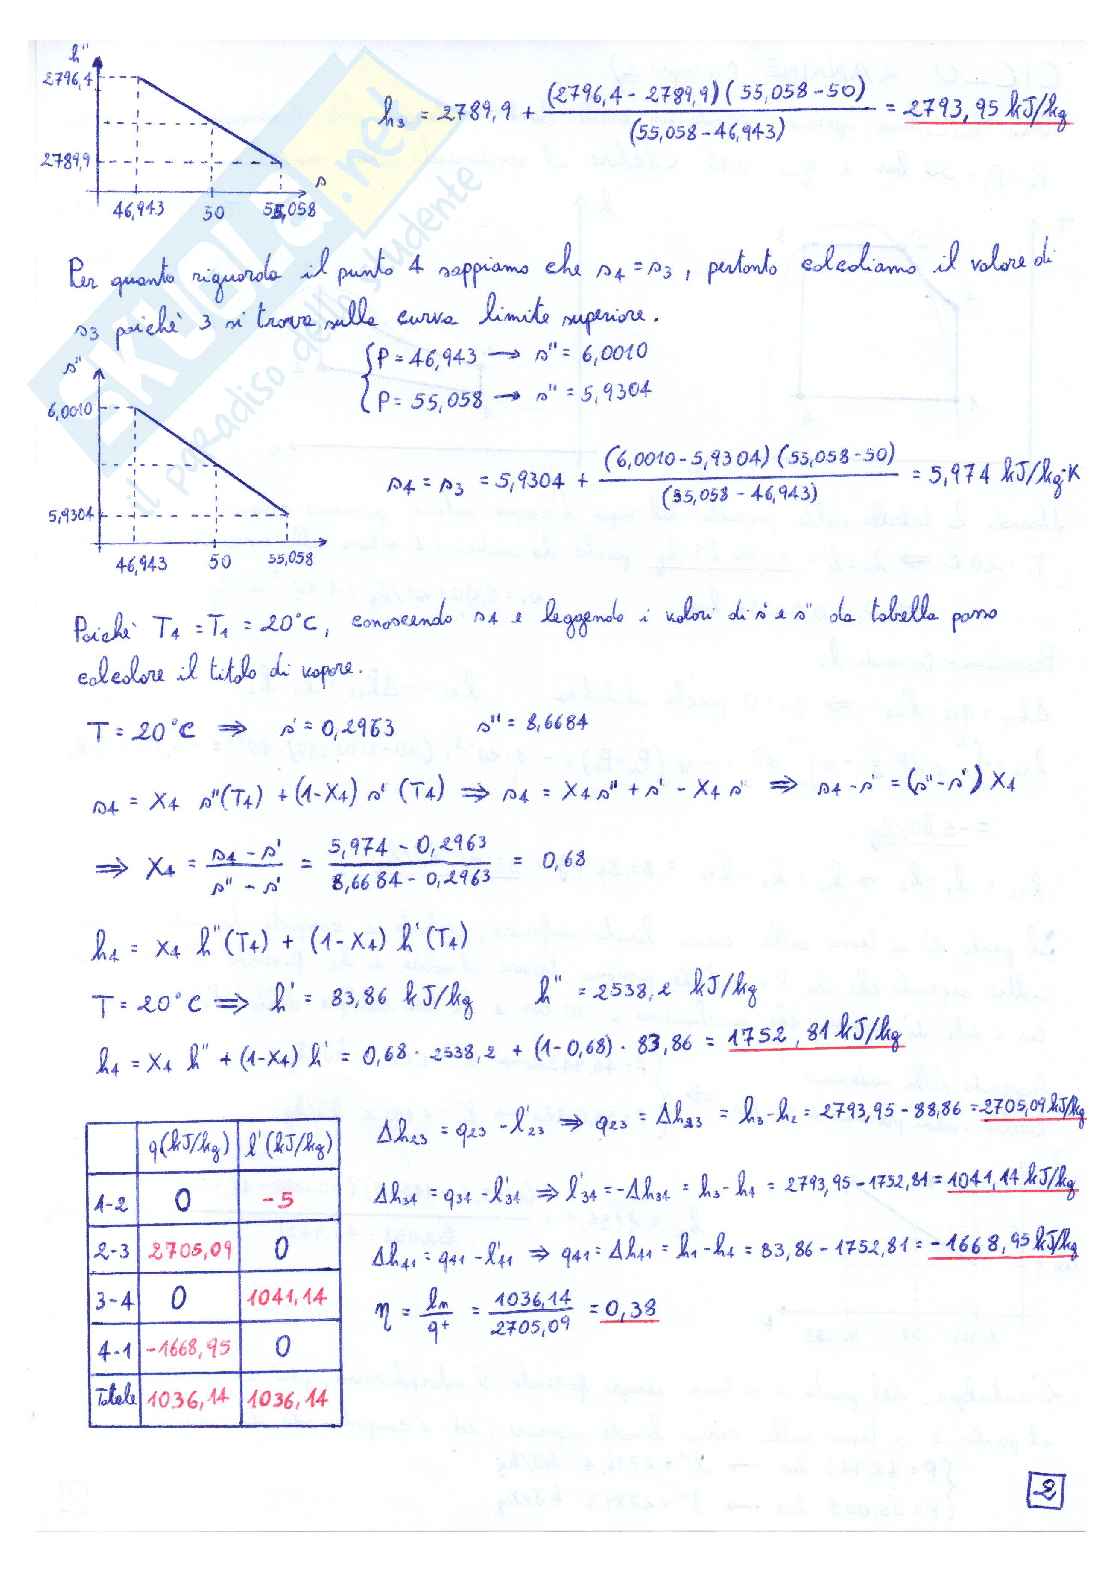 h''
2796,4
2789,9
46,943 50 55,058
h₃ = 2789,9 + (2796,4 - 2789,9)(55,058-50) / (55,058-46,943) = 2793,95 kJ/kg
Per quanto riguarda il punto 4 sappiamo che s₄ = s₃, pertanto calcoliamo il valore di
s₃ poichè 3 si trova sulla curva limite superiore.
{ P = 46,943 → s'' = 6,0010
P = 55,058 → s'' = 5,9304
s''
6,0010
5,9304
46,943 50 55,058
s₄ = s₃ = 5,9304 + (6,0010-5,9304)(55,058-50) / (55,058-46,943) = 5,974 kJ/kg·K
Poichè T₄ = T₁ = 20°C, conoscendo s₄ e leggendo i valori di s' e s'' da tabella posso
calcolare il titolo di vapore.
T = 20°C ⇒ s' = 0,2963 s'' = 8,6684
s₄ = X₄ s''(T₄) + (1-X₄) s' (T₄) ⇒ s₄ = X₄ s'' + s' - X₄ s' ⇒ s₄ - s' = (s''-s') X₄
⇒ X₄ = s₄ - s' / s'' - s' = 5,974 - 0,2963 / 8,6684 - 0,2963 = 0,68
h₄ = X₄ h''(T₄) + (1-X₄) h'(T₄)
T = 20°C ⇒ h' = 83,86 kJ/kg h'' = 2538,2 kJ/kg
h₄ = X₄ h'' + (1-X₄) h' = 0,68 · 2538,2 + (1-0,68) · 83,86 = 1752,81 kJ/kg
q(kJ/kg) l'(kJ/kg)
1-2 0 -5
2-3 2705,09 0
3-4 0 1041,14
4-1 -1668,95 0
Totale 1036,14 1036,14
Δh₂₃ = q₂₃ - l'₂₃ ⇒ q₂₃ = Δh₂₃ = h₃-h₂ = 2793,95 - 88,86 = 2705,09 kJ/kg
Δh₃₄ = q₃₄ - l'₃₄ ⇒ l'₃₄ = -Δh₃₄ = h₃-h₄ = 2793,95 - 1752,81 = 1041,14 kJ/kg
Δh₄₁ = q₄₁ - l'₄₁ ⇒ q₄₁ = Δh₄₁ = h₁-h₄ = 83,86 - 1752,81 = -1668,95 kJ/kg
η = lₙ / q⁺ = 1036,14 / 2705,09 = 0,38
2
SKUOLA.net
il paradiso dello studente